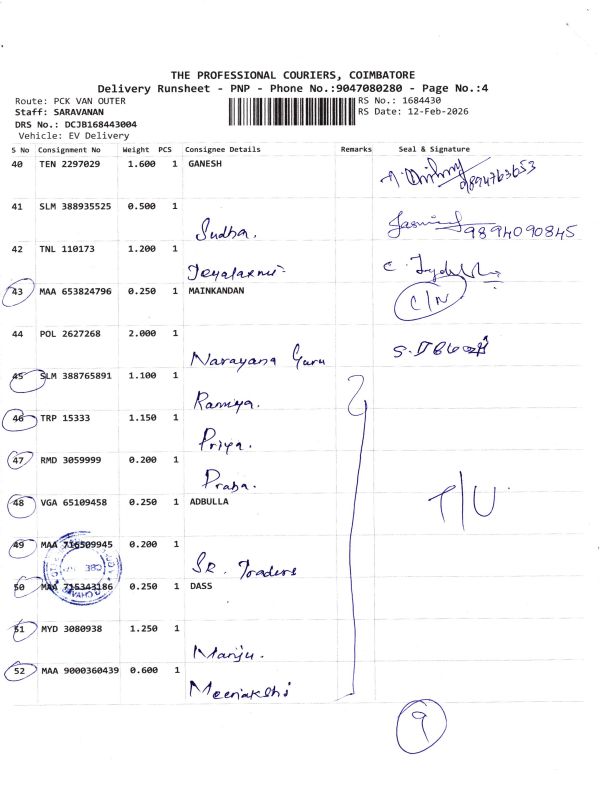 THE PROFESSIONAL COURIERS, COIMBATORE
Delivery Runsheet - PNP - Phone No.:9047080280 - Page No.:4
Route: PCK VAN OUTER RS No.: 1684430
Staff: SARAVANAN RS Date: 12-Feb-2026
DRS No.: DCJB168443004
Vehicle: EV Delivery
S No Consignment No Weight PCS Consignee Details Remarks Seal & Signature
40 TEN 2297029 1.600 1 GANESH
9894763653
41 SLM 388935525 0.500 1
Sudha. Jasmine 9894090845
42 TNL 110173 1.200 1
Jeyalaxmi
43 MAA 653824796 0.250 1 MAINKANDAN C/N
44 POL 2627268 2.000 1
Narayana Guru
45 SLM 388765891 1.100 1
Ramya.
46 TRP 15333 1.150 1
Priya.
47 RMD 3059999 0.200 1
Praba.
48 VGA 65109458 0.250 1 ADBULLA T/U
49 MAA 716509945 0.200 1
SR. Traders
50 MAA 715343186 0.250 1 DASS
51 MYD 3080938 1.250 1
Manju.
52 MAA 9000360439 0.600 1
Meenakshi
9